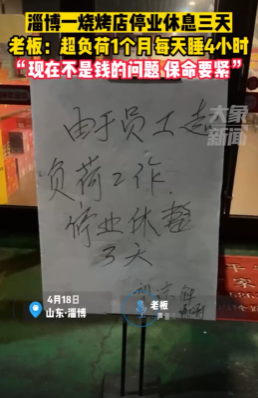 淄博一烧烤店停业休息三天
老板：超负荷1个月每天睡4小时
“现在不是钱的问题 保命要紧”
大象
新闻
由于员工超
负荷工作.
停业休整
3天
4月18日
山东·淄博
老板